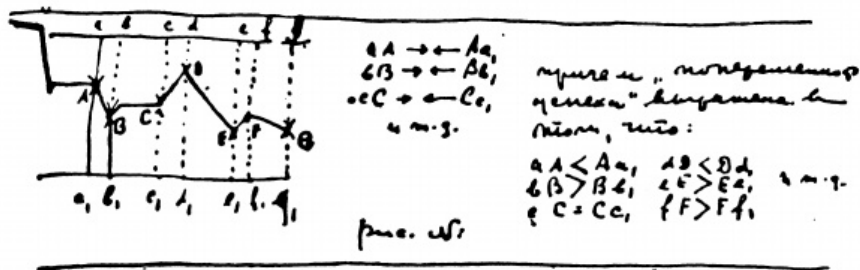 a b c d e f g
A B C D E F G
a₁ b₁ c₁ d₁ e₁ f₁ g₁
aA →← Aa₁
bB →← Bb₁
cC →← Cc₁
и т.д.
причем „попеременного
успеха“ выражена в
том, что:
aA < Aa₁ dD < Dd₁
bB > Bb₁ eE > Ee₁ и т.д.
cC = Cc₁ fF > Ff₁
рис. №1